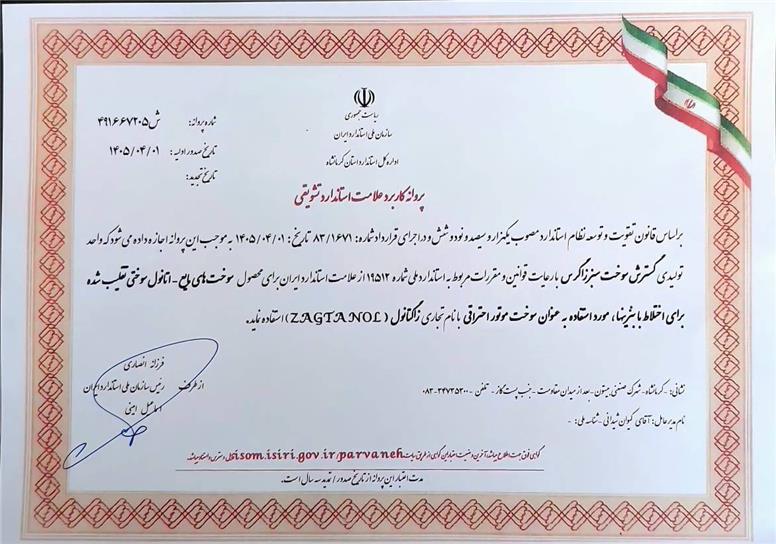 ریاست جمهوری
سازمان ملی استاندارد ایران
اداره کل استاندارد استان کرمانشاه
شماره پروانه: ش۴۹۱۶۶۷۲۰۵
تاریخ صدور اولیه: ۱۴۰۵/۰۴/۰۱
تاریخ تجدید:
پروانه کاربرد علامت استاندارد تشویقی
براساس قانون تقویت و توسعه نظام استاندارد مصوب یکهزار و سیصد و نود و شش و در اجرای قرارداد شماره: ۸۳/۱۶۷۱ تاریخ: ۱۴۰۵/۰۴/۰۱ به موجب این پروانه اجازه داده می شود که واحد
تولیدی گسترش سوخت سبز زاگرس با رعایت قوانین و مقررات مربوط به استاندارد ملی شماره ۱۹۵۱۲ از علامت استاندارد ایران برای محصول سوخت های مایع - اتانول سوختی تقلیب شده
برای اختلاط با بنزینها، مورد استفاده به عنوان سوخت موتور احتراقی با نام تجاری زاگتانول (ZAGTANOL) استفاده نماید.
فرزانه انصاری
از طرف رئیس سازمان ملی استاندارد ایران
اسماعیل امینی
نشانی: - کرمانشاه - شهرک صنعتی بیستون - بعد از میدان مقاومت - جنب پست گاز - تلفن - ۰۸۳-۳۴۷۳۵۲۰۰
نام مدیرعامل: آقای کیوان شیدائی - شناسه ملی: -
گواهی فوق جهت اطلاع میباشد آخرین وضعیت اعتبار این گواهی از طریق سایت isom.isiri.gov.ir/parvaneh قابل دسترسی و استناد میباشد.
مدت اعتبار این پروانه از تاریخ صدور / تمدید سه سال است.